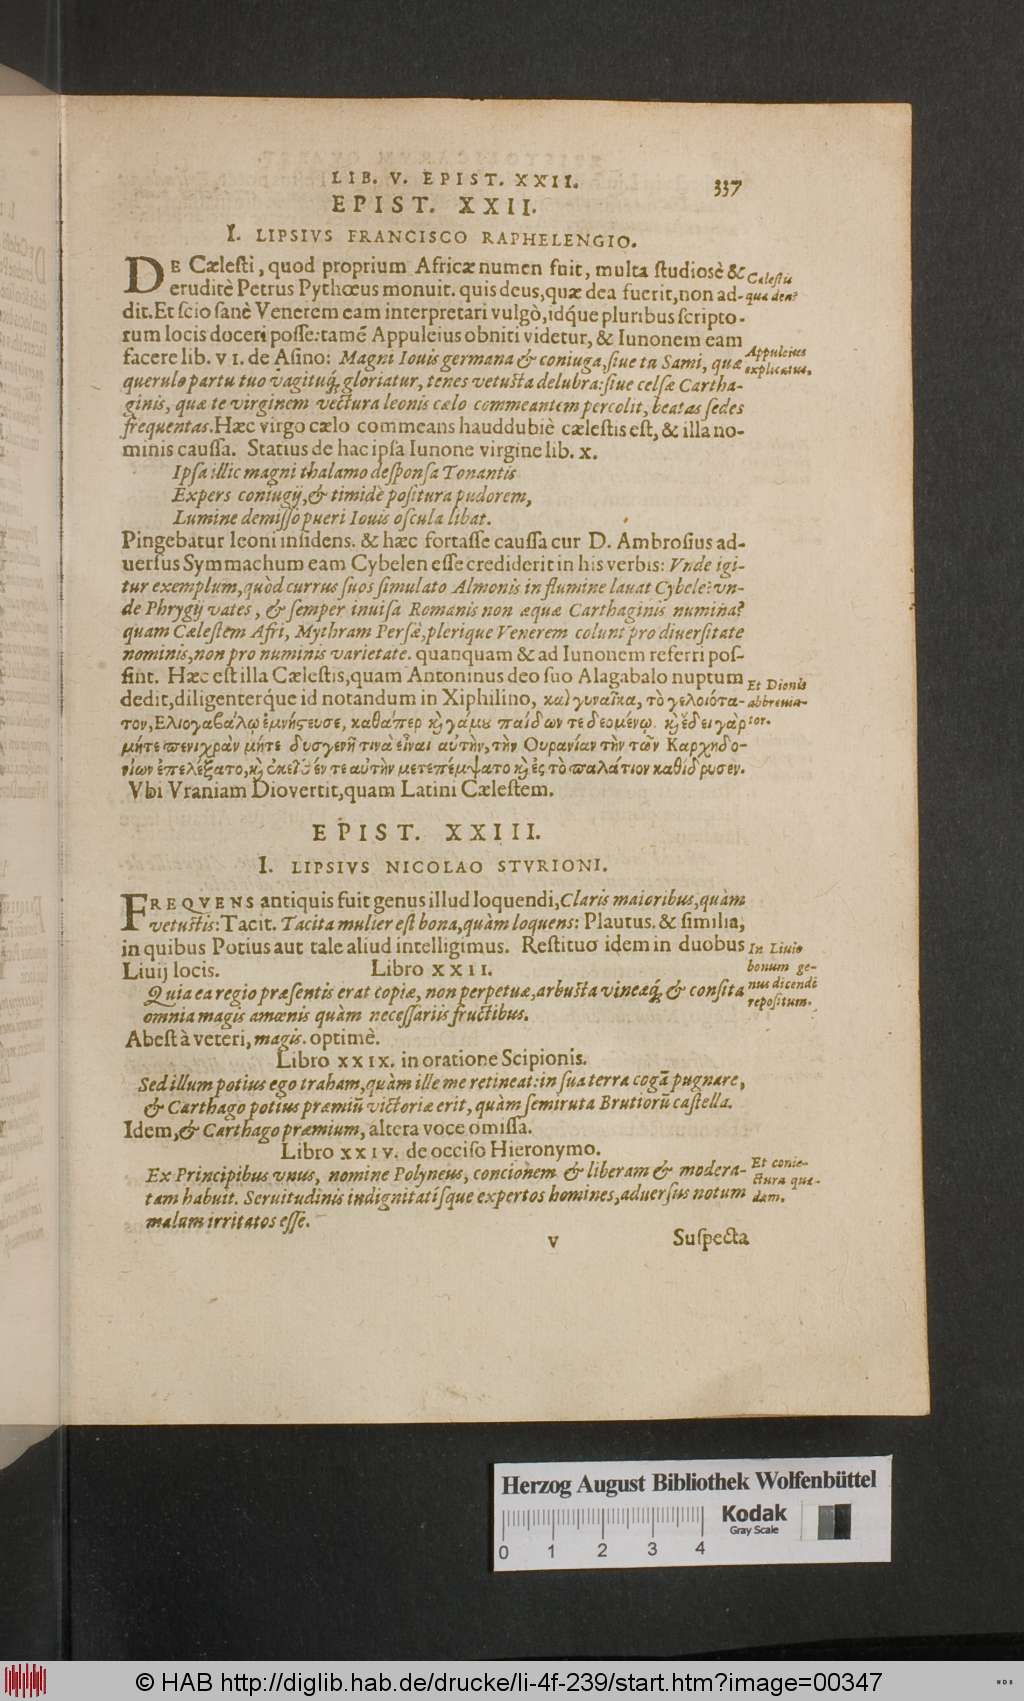 LIB. V. EPIST. XXII. 337
EPIST. XXII.
I. LIPSIVS FRANCISCO RAPHELENGIO.
DE Cælesti, quod proprium Africæ numen fuit, multa studiosè &
eruditè Petrus Pythœus monuit. quis deus, quæ dea fuerit, non ad-
dit. Et scio sanè Venerem eam interpretari vulgò, idq́ue pluribus scripto-
rum locis doceri posse: tamē Appuleius obniti videtur, & Iunonem eam
facere lib. VI. de Asino: Magni Iouis germana & coniuga, siue tu Sami, quæ
querulo partu tuo vagituq́; gloriatur, tenes vetusta delubra: siue celsæ Cartha-
ginis, quæ te virginem vectura leonis cælo commeantem percolit, beatas sedes
frequentas. Hæc virgo cælo commeans hauddubiè cælestis est, & illa no-
minis caussa. Statius de hac ipsa Iunone virgine lib. X.
Ipsa illic magni thalamo desponsa Tonantis
Expers coniugij, & timidè positura pudorem,
Lumine demisso pueri Iouis oscula libat.
Pingebatur leoni insidens. & hæc fortasse caussa cur D. Ambrosius ad-
uersus Symmachum eam Cybelen esse crediderit in his verbis: Vnde igi-
tur exemplum, quòd currus suos simulato Almonis in flumine lauat Cybele? vn-
de Phrygij vates, & semper inuisa Romanis non æquæ Carthaginis numina?
quam Cælestem Afri, Mythram Persæ, plerique Venerem colunt pro diuersitate
nominis, non pro numinis varietate. quanquam & ad Iunonem referri pos-
sint. Hæc est illa Cælestis, quam Antoninus deo suo Alagabalo nuptum
dedit, diligenterq́ue id notandum in Xiphilino, καὶ γυναῖκα, τὸ γελοιότα-
τον, Ελιογαβάλῳ ἐμνήστευσε, καθάπερ καὶ γάμου παίδων τε δεομένῳ. καὶ ἔδει γὰρ
μήτε πενιχρὰν μήτε δυσγενῆ τινὰ εἶναι αὐτὴν, τὴν Ουρανίαν τὴν τῶν Καρχηδο-
νίων ἐπελέξατο, καὶ ἐκεῖθέν τε αὐτὴν μετεπέμψατο καὶ ἐς τὸ παλάτιον καθίδρυσεν.
Vbi Vraniam Dio vertit, quam Latini Cælestem.
Cælestis
quæ dea?
Appuleius
explicatus.
Et Dionis
abbreuia-
tor.
EPIST. XXIII.
I. LIPSIVS NICOLAO STVRIONI.
FREQVENS antiquis fuit genus illud loquendi, Claris maioribus, quàm
vetustis: Tacit. Tacita mulier est bona, quàm loquens: Plautus. & similia,
in quibus Potius aut tale aliud intelligimus. Restituo idem in duobus
Liuij locis. Libro XXII.
Quia ea regio præsentis erat copiæ, non perpetuæ, arbusta vineæq́; & consita
omnia magis amœnis quàm necessariis fructibus.
Abest à veteri, magis. optimè.
Libro XXIX. in oratione Scipionis.
Sed illum potius ego traham, quàm ille me retineat: in sua terra cogā pugnare,
& Carthago potius præmiū victoriæ erit, quàm semiruta Brutiorū castella.
Idem, & Carthago præmium, altera voce omissa.
Libro XXIV. de occiso Hieronymo.
Ex Principibus vnus, nomine Polyneus, concionem & liberam & modera-
tam habuit. Seruitudinis indignitatisque expertos homines, aduersus notum
malum irritatos esse.
In Liuio
bonum ge-
nus dicendi
repositum.
Et conie-
ctura quæ-
dam.
V Suspecta
Herzog August Bibliothek Wolfenbüttel
Kodak
Gray Scale
0 1 2 3 4
© HAB http://diglib.hab.de/drucke/li-4f-239/start.htm?image=00347